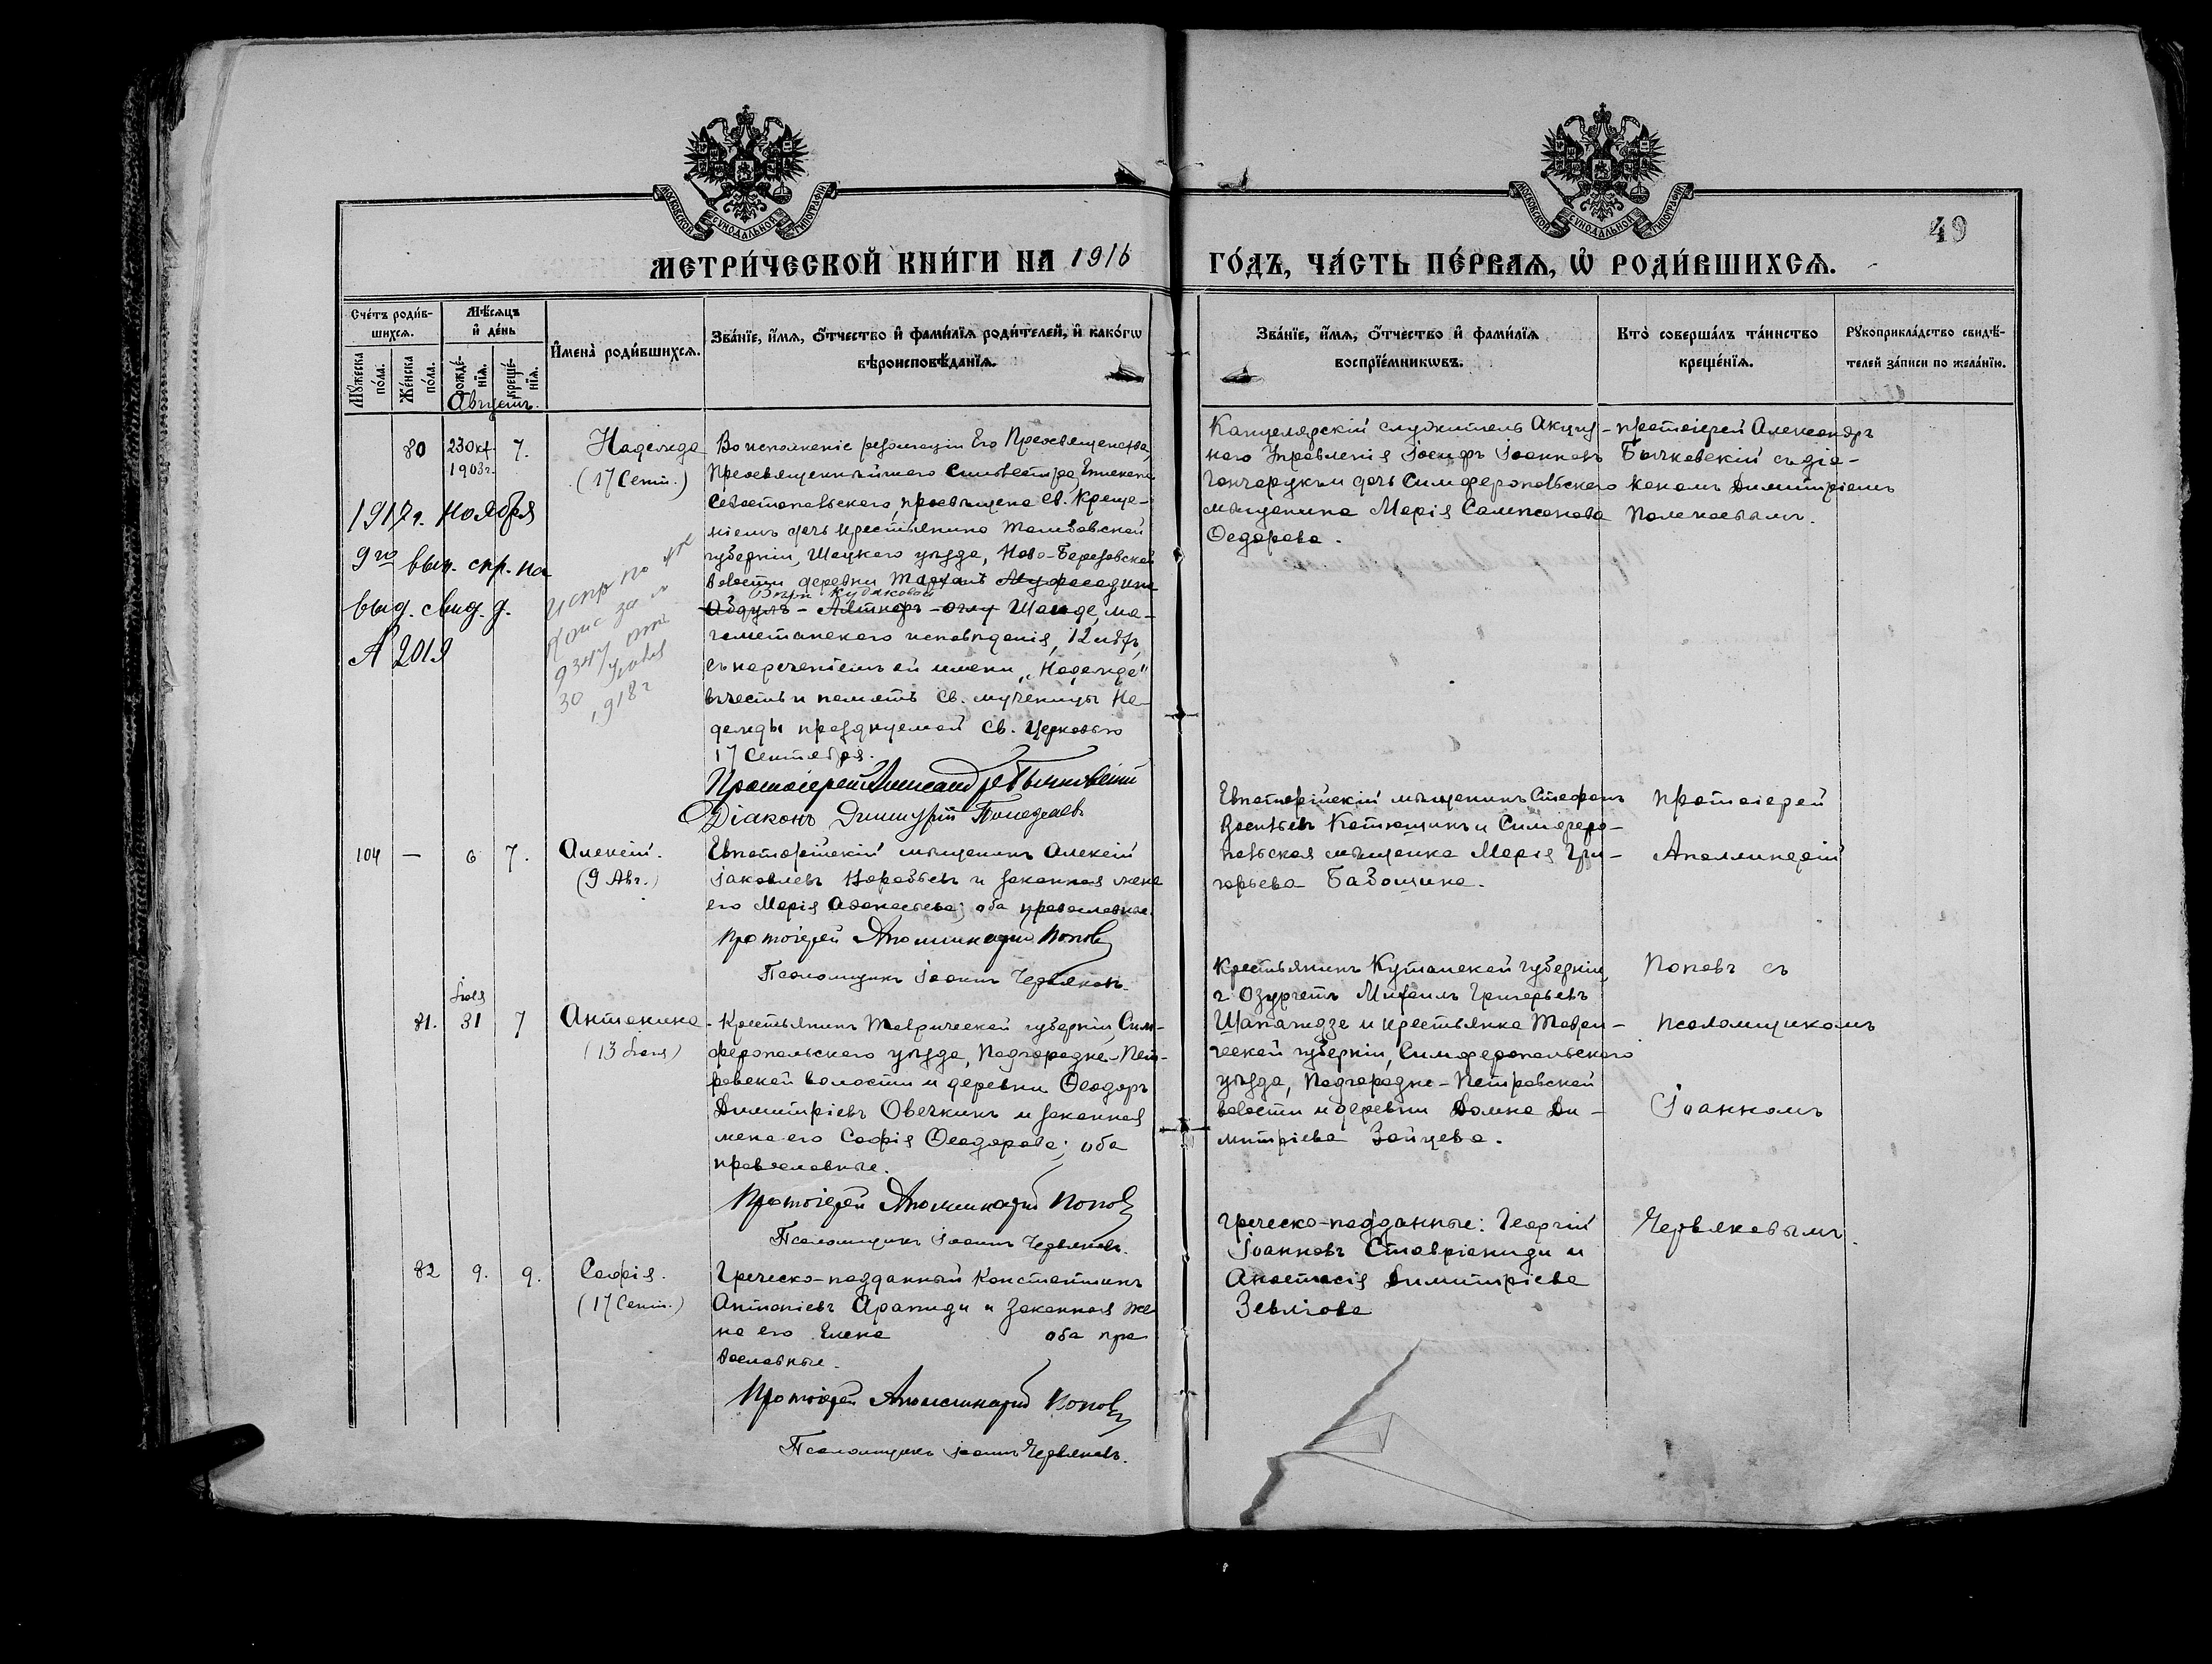 МОСКОВСКОЙ СУНОДАЛЬНОЙ ТИПОГРАФІИ
МОСКОВСКОЙ СУНОДАЛЬНОЙ ТИПОГРАФІИ
49
МЕТРИ́ЧЕСКОЙ КНИ́ГИ НА 1916
ГО́ДЪ, ЧА́СТЬ ПЕ́РВАЯ, Ѡ҆ РОДИ́ВШИХСЯ.
Сче́тъ роди́в-
шихся.
Мꙋ́жеска по́ла.
Же́нска по́ла.
Мѣ́сяцъ
и҆ де́нь
рожде́-
нїя.
креще́-
нїя.
Августъ.
И҆мена̀ роди́вшихся.
Зва́нїе, и҆́мя, ѻ҆́тчество и҆ фами́лїя роди́телей, и҆ како́гѡ
вѣроисповѣ́данїя.
Зва́нїе, и҆́мя, ѻ҆́тчество и҆ фами́лїя
воспрїе́мникѡвъ.
Кто̀ соверша́лъ та́инство
креще́нїя.
Рꙋкоприкла́дство свидѣ́-
телей за́писи по жела́нїю.
80
23 окт.
1903 г.
7.
Надежда
(17 Сент.)
Во исполненіе резолюціи Его Преосвященства,
Преосвященнѣйшаго Сильвестра, Епископа
Севастопольскаго, просвѣщена Св. Креще-
ніемъ дочь крестьянина Тамбовской
губерніи, Шацкаго уѣзда, Ново-Березовской
волости деревни
Шаиде, ма-
гометанскаго исповѣданія, 12 лѣтъ,
съ нареченіемъ ей имени „Надежда"
въ честь и память Св. мученицы На-
дежды празднуемой Св. Церковью
17 Сентября.
Протоіерей Александръ Бычковскій
Діаконъ Димитрій
Канцелярскій служитель Акциз-
наго Управленія Іосифъ Іоанновъ
Гончарукъ и дочь Симферопольскаго
мѣщанина Марія Сампсонова
Ѳедорова.
протоіерей Александръ
Бычковскій съ діа-
кономъ Димитріемъ
1917 г. ноября
9го выд. спр. на
выд. свид. д.
№ 2019
испр по
30
1918 г
104
—
6
7.
Алексій.
(9 Авг.)
Евпаторійскій мѣщанинъ Алексій
Іаковлевъ Воробьевъ и законная жена
его Марія Аѳанасьева; оба православные.
Протоіерей Аполлинарій Поповъ
Псаломщикъ Іоаннъ Червяковъ.
Евпаторійскій мѣщанинъ Стефанъ
Васильевъ Котющикъ и Симферо-
польская мѣщанка Марія Гри-
горьева Бабошина.
протоіерей
Аполлинарій
Іюля
81.
31
7
Антонина
(13 Іюня)
Крестьянинъ Таврической губерніи, Сим-
феропольскаго уѣзда, Подгородне-Пет-
ровской волости и деревни Ѳеодоръ
Димитріевъ Овечкинъ и законная
жена его Софія Ѳеодорова; оба
православные.
Протоіерей Аполлинарій Поповъ
Псаломщикъ Іоаннъ Червяковъ.
Крестьянинъ Кутаисской губерніи,
г. Озургетъ Михаилъ Григорьевъ
Шапатидзе и крестьянка Таври-
ческой губерніи, Симферопольскаго
уѣзда, Подгородне-Петровской
волости и деревни Домна Ди-
митріева Зайцева.
Поповъ съ
псаломщикомъ
Іоанномъ
82
9.
9.
Софія.
(17 Сент.)
Греческо-подданный Константинъ
Антоніевъ Арапиди и законная же-
на его Елена оба пра
вославные.
Протоіерей Аполлинарій Поповъ
Псаломщикъ Іоаннъ Червяковъ.
Греческо-подданные: Георгій
Іоанновъ Ставріаниди и
Анастасія Димитріева
Червяковымъ.